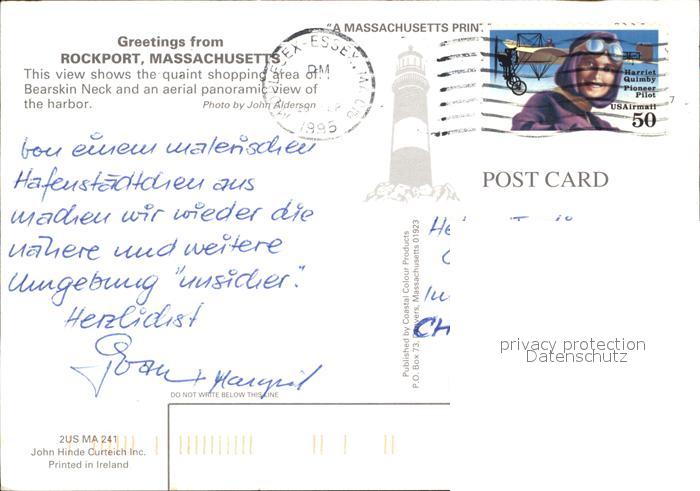 "A MASSACHUSETTS PRIN
Greetings from
ROCKPORT, MASSACHUSETTS
This view shows the quaint shopping area of
Bearskin Neck and an aerial panoramic view of
the harbor.
Photo by John Alderson
1995
Harriet
Quimby
Pioneer
Pilot
USAirmail
50
7
POST CARD
von einem malerischen
Hafenstädtchen aus
machen wir wieder die
nähere und weitere
Umgebung "unsicher".
Herzlichst
+ Margrit
Published by Coastal Colour Products
P.O. Box 73, Danvers, Massachusetts 01923
CH
privacy protection
Datenschutz
DO NOT WRITE BELOW THIS LINE
2US MA 241
John Hinde Curteich Inc.
Printed in Ireland